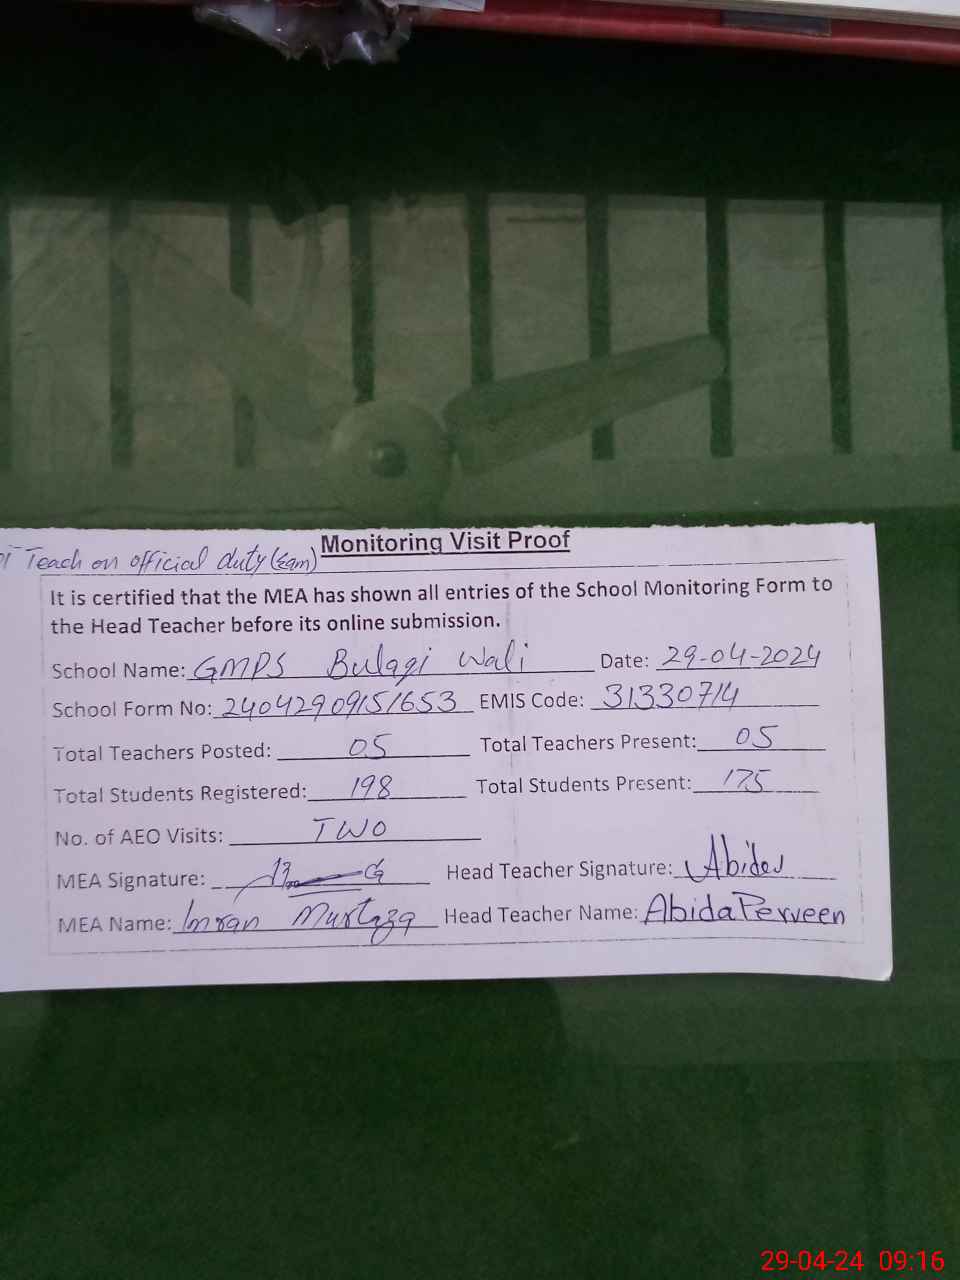 Monitoring Visit Proof
01 Teach on official duty (Exam)
It is certified that the MEA has shown all entries of the School Monitoring Form to
the Head Teacher before its online submission.
School Name: GMPS Bulaqi Wali Date: 29-04-2024
School Form No: 24042909151653 EMIS Code: 31330714
Total Teachers Posted: 05 Total Teachers Present: 05
Total Students Registered: 198 Total Students Present: 175
No. of AEO Visits: TWO
MEA Signature: Head Teacher Signature: Abida
MEA Name: Imran Murtaza Head Teacher Name: Abida Perveen
29-04-24 09:16